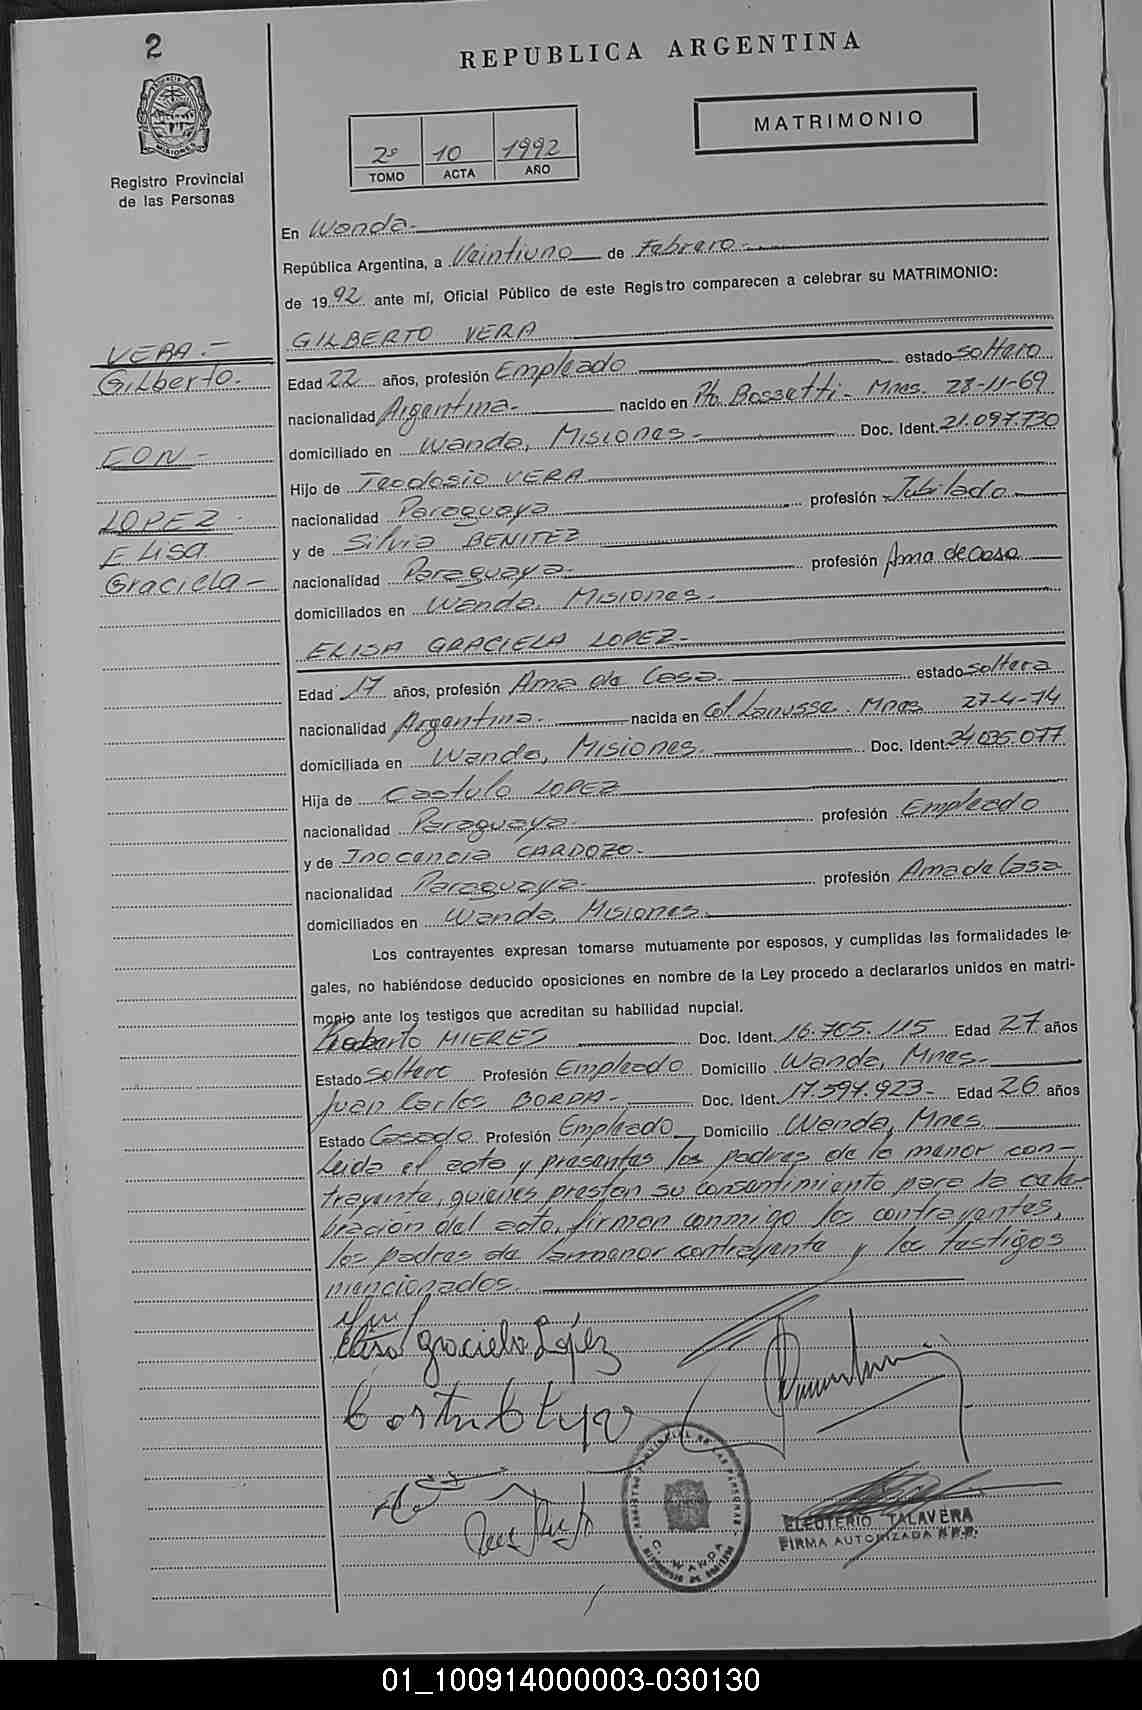 2
REPUBLICA ARGENTINA
MISIONES
Registro Provincial
de las Personas
2º 10 1992
TOMO ACTA AÑO
MATRIMONIO
En Wanda.-
República Argentina, a Veintiuno de Febrero.-
de 1992 ante mí, Oficial Público de este Registro comparecen a celebrar su MATRIMONIO:
GILBERTO VERA
VERA.-
Gilberto.
CON-
LOPEZ
ELISA
Graciela-
Edad 22 años, profesión Empleado estado soltero
nacionalidad Argentina.- nacido en Pto. Bossetti- Mnes. 28-11-69
domiciliado en Wanda, Misiones.- Doc. Ident. 21.097.730
Hijo de Teodosio VERA
nacionalidad Paraguaya profesión Jubilado
y de Silvia BENITEZ
nacionalidad Paraguaya.- profesión Ama de Casa
domiciliados en Wanda, Misiones.
ELISA GRACIELA LOPEZ-
Edad 17 años, profesión Ama de Casa. estado soltera
nacionalidad Argentina. nacida en Col. Lanusse. Mnes 27-4-74
domiciliada en Wanda, Misiones. Doc. Ident. 24.035.077
Hija de Castulo LOPEZ
nacionalidad Paraguaya. profesión Empleado
y de Inocencia CARDOZO.
nacionalidad Paraguaya.- profesión Ama de Casa
domiciliados en Wanda, Misiones.
Los contrayentes expresan tomarse mutuamente por esposos, y cumplidas las formalidades le-
gales, no habiéndose deducido oposiciones en nombre de la Ley procedo a declararlos unidos en matri-
monio ante los testigos que acreditan su habilidad nupcial.
MIERES Doc. Ident. 16.705.115 Edad 27 años
Estado soltero Profesión Empleado Domicilio Wanda, Mnes.
Juan Carlos BORDA- Doc. Ident. 17.597.923- Edad 26 años
Estado Casado Profesión Empleado Domicilio Wanda, Mnes
Leida el acta y presentes los padres de la menor con-
trayente, quienes prestan su consentimiento para la cele-
bración del acto, firman conmigo los contrayentes,
los padres de la menor contrayente y los testigos
mencionados.
Elisa Graciela López
C. WANDA
ELEUTERIO TALAVERA
FIRMA AUTORIZADA R.P.P.
01_100914000003-030130